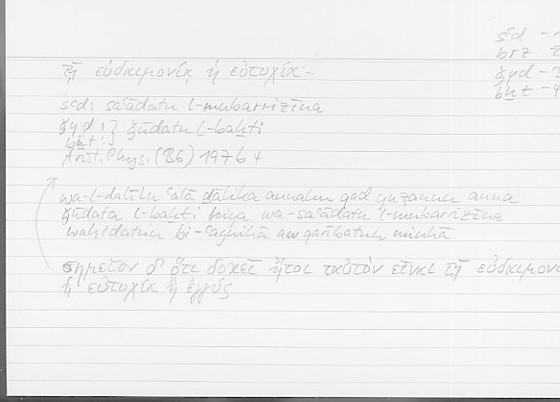 sʿd – 1
brz – 2
ǧyd – 3
bḫt – 4
τῇ εὐδαιμονίᾳ ἡ εὐτυχία –
sʿd: saʿādatu l-mubarrizīna
ǧyd:} ǧūdatu l-baḫti
bḫt:}
Arist. Phys. (B6) 197b4
wa-l-dalīlu ʿalā ḏālika annahu qad yuẓannu anna
ǧūdata l-baḫti hiya wa-saʿādatu l-mubarrizīna
wāḥidatun bi-ʿaynihā aw qarībatun minhā
σημεῖον δ᾽ ὅτι δοκεῖ ἤτοι ταὐτὸν εἶναι τῇ εὐδαιμον
ἡ εὐτυχία ἢ ἐγγύς